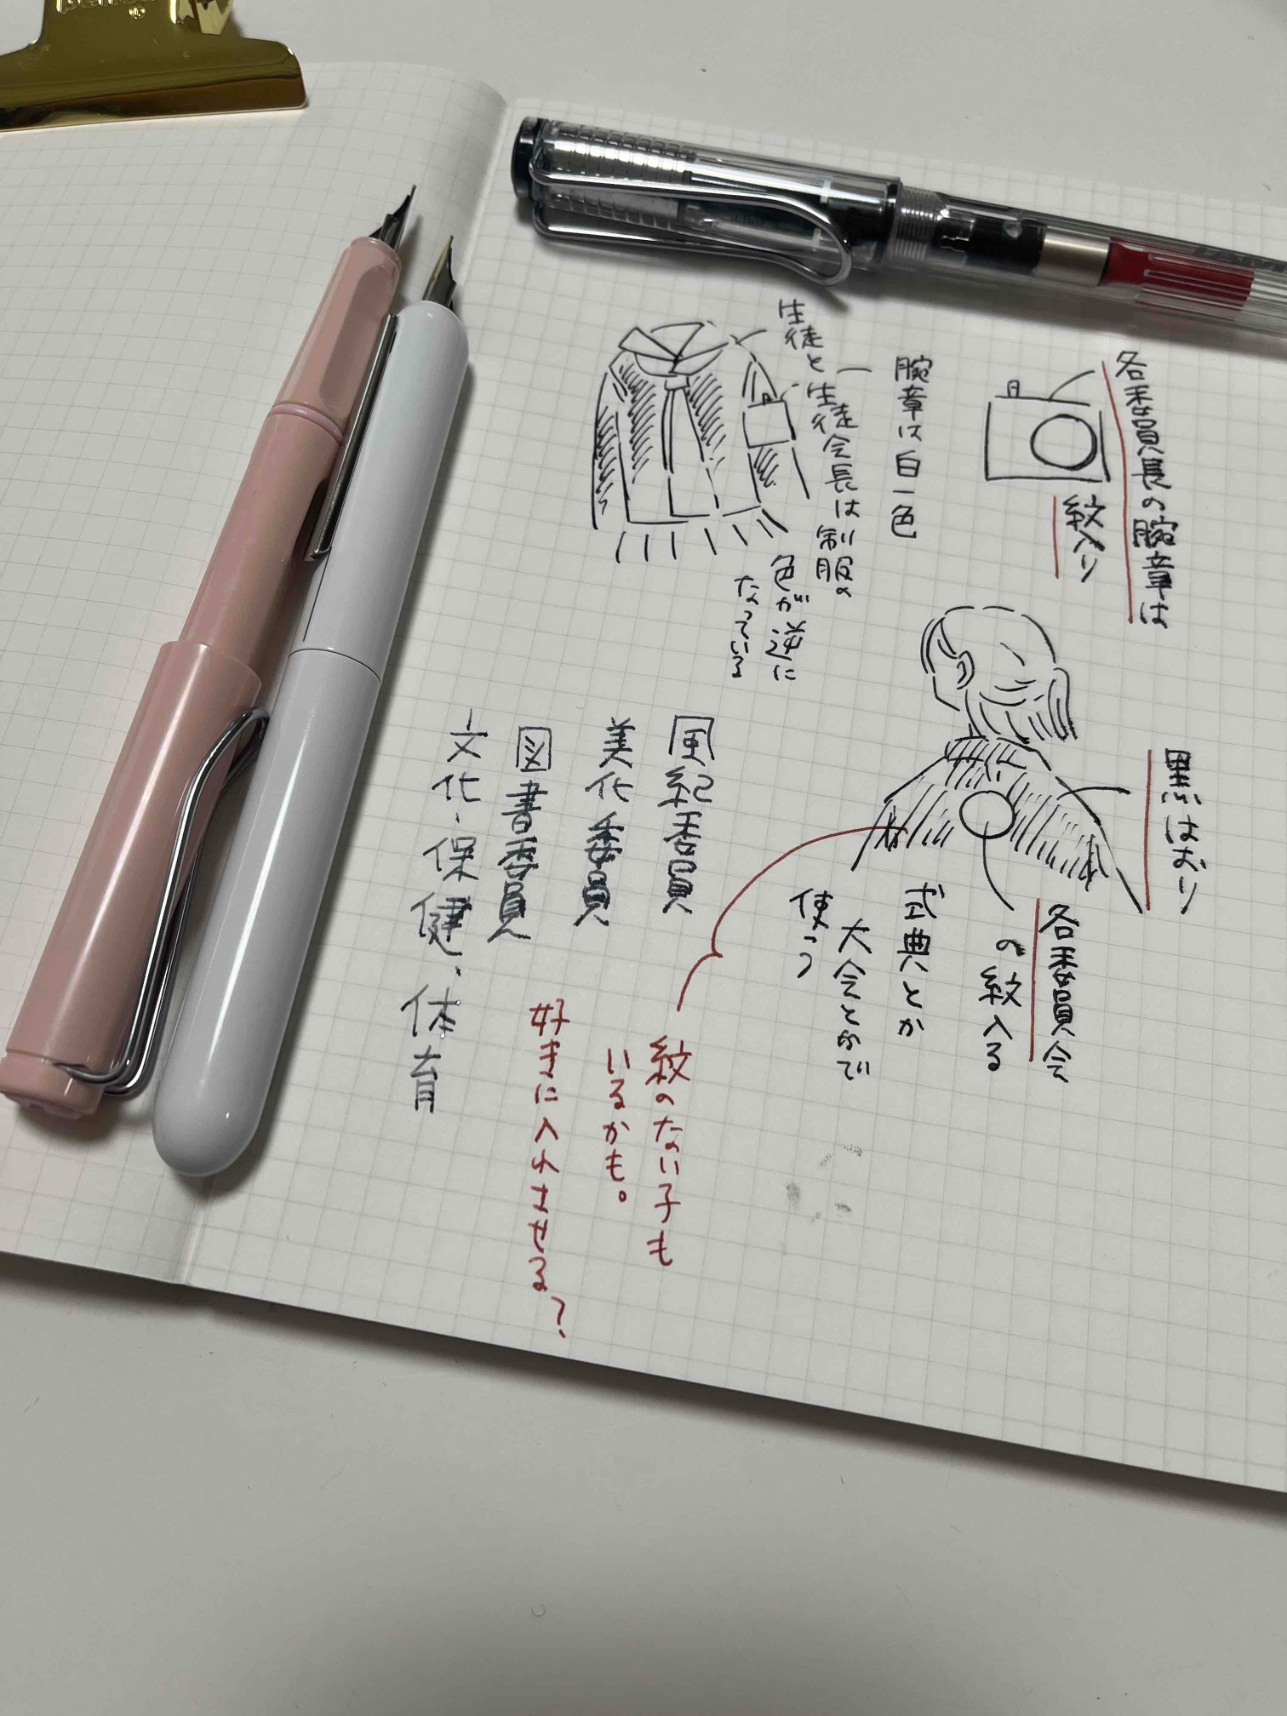 各委員長の腕章は
紋入り
腕章は白一色
生徒と生徒会長は制服の
色が逆に
なっている
黒はおり
各委員会
の紋入る
式典とか
大会とかで
使う
風紀委員
美化委員
図書委員
文化、保健、体育
紋のない子も
いるかも。
好きに入れさせる?